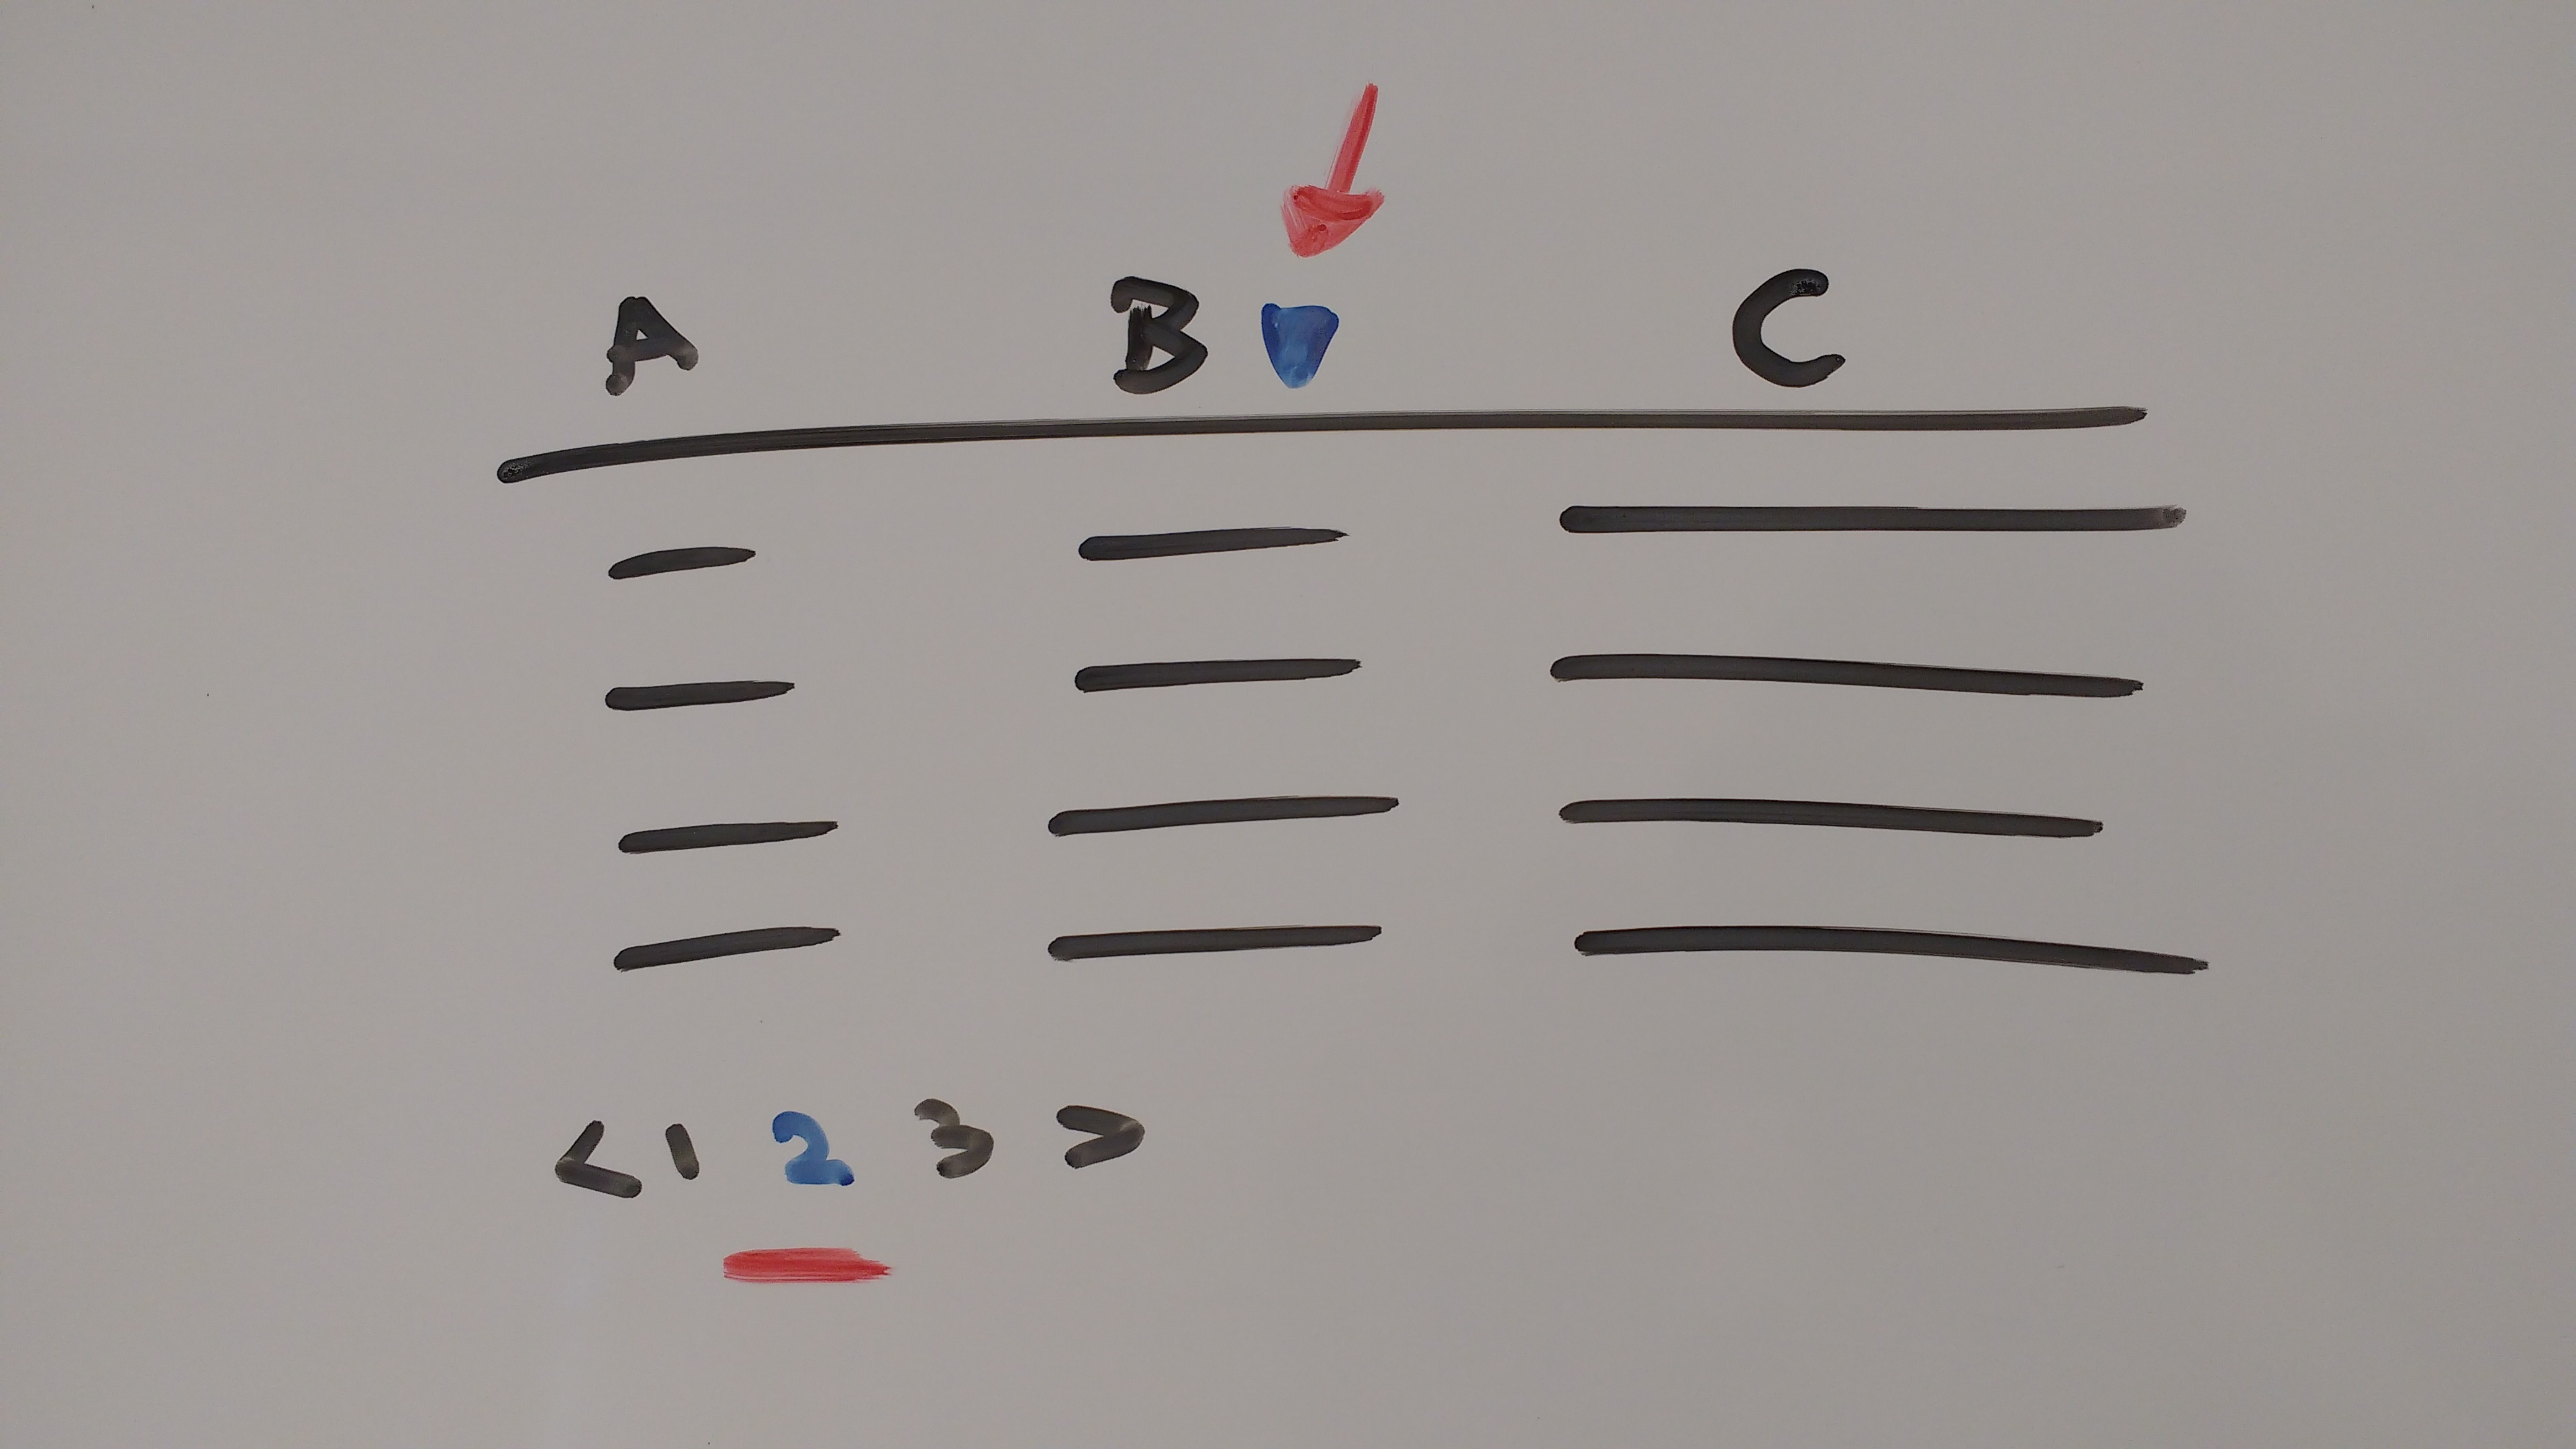 A B C
< 1 2 3 >